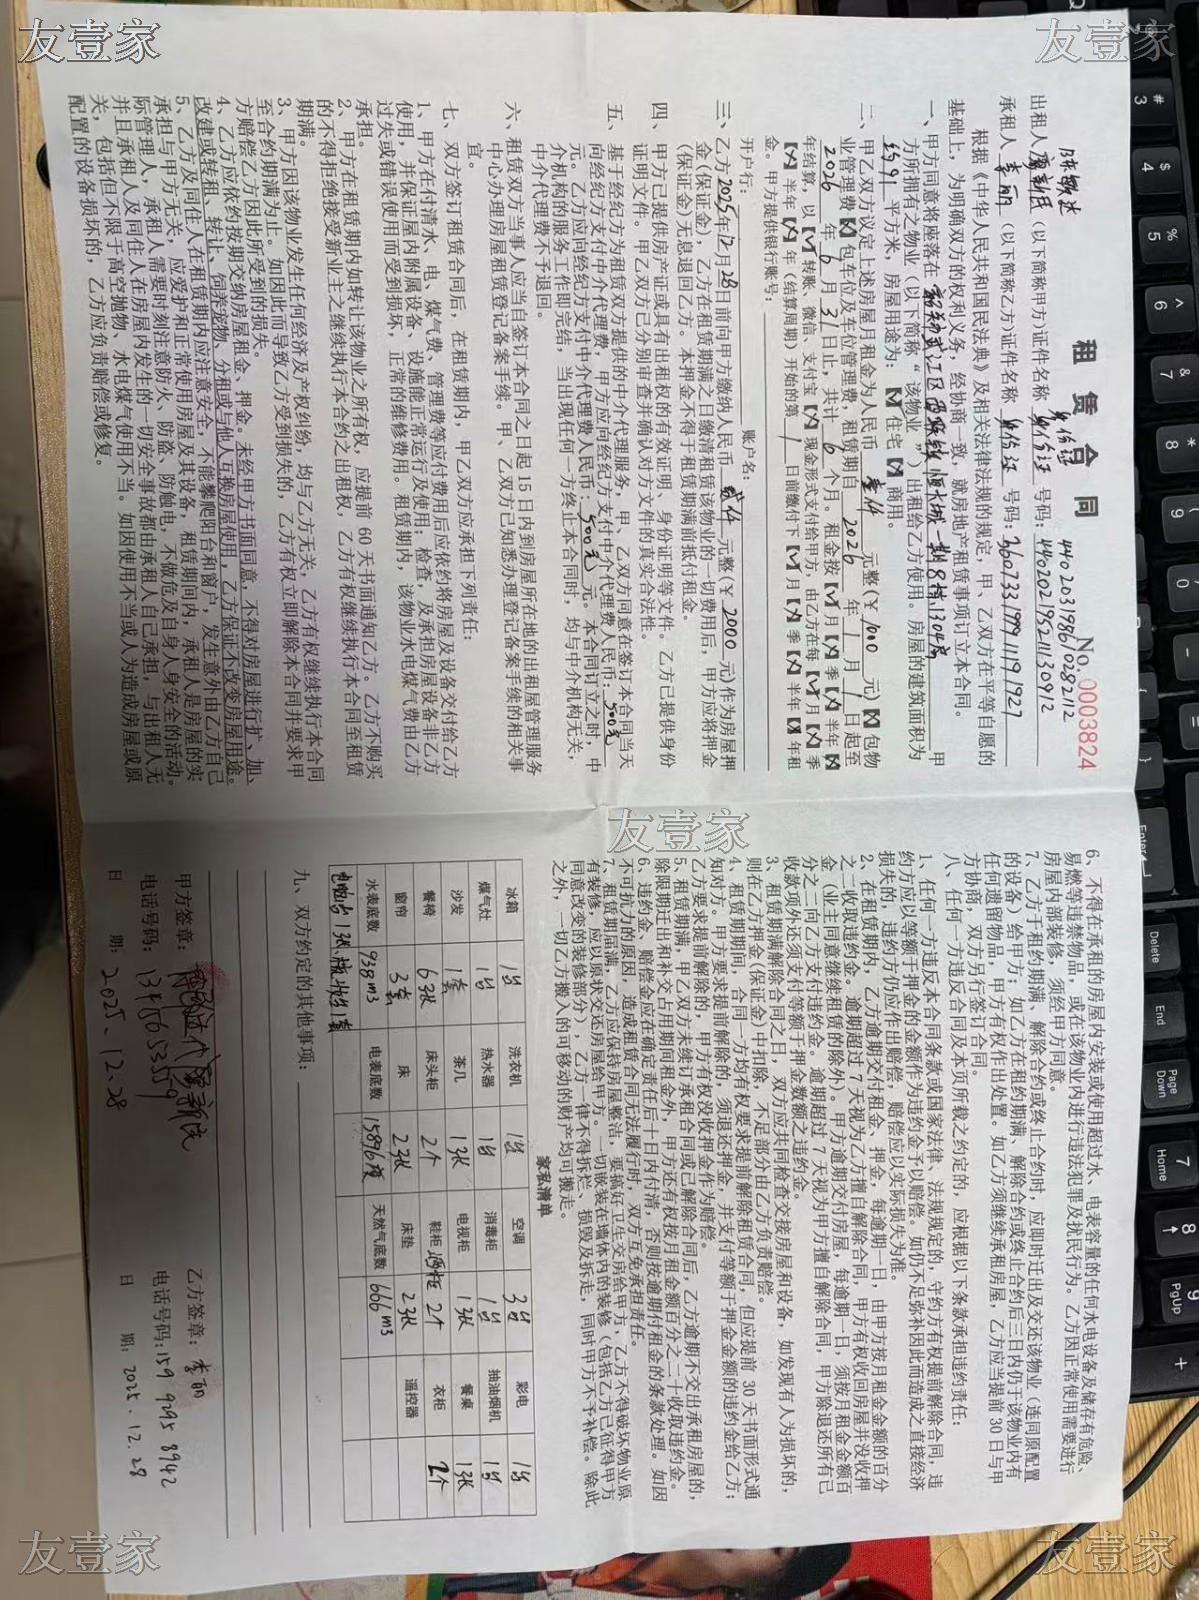 友壹家
友壹家
租赁合同
No. 0003824
陈敏达
身份证
440203198610282112
出租人 (以下简称甲方)证件名称 身份证 号码: 440202195211130912
承租人 李丽 (以下简称乙方)证件名称 身份证 号码: 360733199911191927
根据《中华人民共和国民法典》及相关法律法规的规定,甲、乙双方在平等自愿的
基础上,为明确双方的权利义务,经协商一致,就房地产租赁事项订立本合同。
一、甲方同意将座落在 韶关武江区西联镇恒大城一期8栋1304房 甲
方所拥有之物业(以下简称“该物业”)出租给乙方使用。房屋的建筑面积为
约91 平方米,房屋用途为:【】住宅【】商用。
二、甲乙双方议定上述房屋月租金为人民币 壹仟 元整(¥ 1000 元)【】包物
业管理费【】包车位及车位管理费,租赁期自 2026 年 1 月 1 日起至
2026 年 6 月 31 日止,共计 6 个月。租金按【】月【】季【】半年【】年租
年结算,以【】转账、微信、支付宝【】现金形式支付给甲方,由乙方在每【】月【】季
【】半年【】年(结算周期)开始的第 1 日前缴付下【】月【】季【】半年【】年租
金。甲方提供银行账号:
开户行: 账户名:
三、乙方2025年12月28日前向甲方缴纳人民币 贰仟 元整(¥ 2000 元)作为房屋押
金(保证金),乙方在租赁期满之日缴清租赁该物业的一切费用后,甲方应将押金
(保证金)无息退回乙方。本押金不得于租赁期满前抵付租金。
四、甲方已提供房产证或具有出租权的有效证明、身份证明等文件。乙方已提供身份
证明文件。甲乙双方已分别审查并确认对方文件的真实合法性。
五、基于经纪方为租赁双方提供的中介代理服务,甲、乙双方同意在签订本合同当天
向经纪方支付中介代理费,甲方应向经纪方支付中介代理费人民币: 500元
元。乙方应向经纪方支付中介代理费人民币: 500元 元。本合同订立之时,中
介机构的服务工作即完结,当出现任何一方终止本合同时,均与中介机构无关,
中介代理费不予退回。
六、租赁双方当事人应当自签订本合同之日起15日内到房屋所在地的出租屋管理服务
中心办理房屋租赁登记备案手续。甲、乙双方已知悉办理登记备案手续的相关事
宜。
七、双方签订租赁合同后,在租赁期内,甲乙双方应承担下列责任:
1、甲方在付清水、电、煤气费、管理费等应付费用后应依约将房屋及设备交付给乙方
使用,并保证屋内附属设备、设施能正常运行及使用;检查,及承担房屋设备非乙方
过失或错误使用而受到损坏,正常的维修费用。租赁期内,该物业水电煤气费由乙方
承担。
2、甲方在租赁期内如转让该物业之所有权,应提前60天书面通知乙方。乙方不购买
的不得拒绝接受新业主之继续执行本合约之出租权,乙方有权继续执行本合同至租赁
期满。
3、甲方因该物业发生任何经济及产权纠纷,均与乙方无关,乙方有权继续执行本合同
至合约期满为止。如因此而导致乙方受到损失的,乙方有权立即解除本合同并要求甲
方赔偿乙方因此所受到的损失。
4、乙方应依约按期交纳房屋租金、押金。未经甲方书面同意,不得对房屋进行扩、加、
改建或转租、转让、饲养宠物、分租或与他人互换房屋使用,乙方保证不改变房屋用途。
5、乙方及同住人在租赁期内应注意安全,不能攀爬阳台和窗户,发生意外由乙方自己
承担与甲方无关,应爱护和正常使用房屋及其设备,租赁期间内,承租人是房屋的实
际管理人,承租人需要时刻注意防火、防盗、防触电,不做危及自身人身安全的活动。
并且承租人及同住人在房屋内发生的一切安全事故都由承租人自己承担,与出租人无
关,包括但不限于高空抛物、水电煤气使用不当。如因使用不当或人为造成房屋或原
配置的设备损坏的,乙方应负责赔偿或修复。
友壹家
6、不得在承租的房屋内安装或使用超过水、电表容量的任何水电设备及储存有危险、
易燃等违禁物品,或在该物业内进行违法犯罪及扰民行为。乙方因正常使用需要进行
房屋内部装修,须经甲方同意。
7、乙方于租约期满、解除合约或终止合约时,应即时迁出及交还该物业(连同原配置
的设备)给甲方;如乙方在租约期满、解除合约或终止合约后三日内仍于该物业内有
任何遗留物品,甲方有权作出处置。如乙方须继续承租房屋,乙方应当提前30日与甲
方协商,双方另行签订合同。
八、任何一方违反合同及本页所载之约定的,应根据以下条款承担违约责任:
1、任何一方违反本合同条款或国家法律、法规规定的,守约方有权提前解除合同,违
约方应以等额于押金的金额作为违约金予以赔偿。如仍不足弥补因此而造成之直接经济
损失的,违约方仍应作出赔偿,赔偿应以实际损失为准。
2、在租赁期内,乙方逾期交付租金、押金,每逾期一日,由甲方按月租金金额的百分
之二收取违约金。逾期超过7天视为乙方擅自解除合同,甲方有权收回房屋并没收押
金(业主同意继续租赁的除外)。甲方逾期交付房屋,每逾期一日,须按月租金金额百
分之二向乙方支付违约金。逾期超过7天视为甲方擅自解除合同,甲方除退还所有已
收款项外还须支付等额于押金数额之违约金。
3、租赁期满解除合同之日,双方应共同检查交接房屋和设备,如发现有人为损坏的,
则在乙方押金(保证金)中扣除,不足部分由乙方负责赔偿。
4、租赁期期间,合同一方均有权要求提前解除租赁合同,但应提前30天书面形式通
知对方。甲方要求提前解除的,须退还押金,并支付等额于押金金额的违约金给乙方;
乙方要求提前解除的,甲方有权没收押金作为赔偿。
5、租赁期满,甲乙双方未续订承租合同或已解除合同后,乙方逾期不交出承租房屋的,
除限期迁出和补交占用期间租金外,甲方还有权按月租金额百分之二十收取违约金。
6、违约金、赔偿金应在确定责任后十日内付清,否则按逾期付租金的条款处理。如因
不可抗力的原因,造成租赁合同无法履行时,双方互免承担责任。
7、租赁期届满,乙方应保持房屋整洁,要搞好卫生交房给甲方,乙方不得破坏物业原
有装修,应以原状交还房屋给甲方。一切嵌装在墙体内的装修(包括乙方已征得甲方
同意改变的装修部分),乙方一律不得拆拦、损毁及拆走,同时甲方不予补偿。除此
之外,一切乙方搬入的可移动的财产均可搬走。
家私清单
冰箱 1台 洗衣机 1台 空调 3台 彩电 1台
煤气灶 1台 热水器 1台 消毒柜 1台 抽油烟机 1台
沙发 1套 茶几 1张 电视柜 1张 餐桌 1张
餐椅 6张 床头柜 2个 鞋柜 2个 衣柜 2个
窗帘 3套 床 2张 床垫 2张 遥控器
水表底数 938m3 电表底数 15896度 天然气底数 666m3
九、双方约定的其他事项:
甲方签章: 乙方签章: 李丽
电话号码: 电话号码: 159 9295 8942
日 期: 2025.12.28 日 期: 2025.12.28
友壹家
友壹家